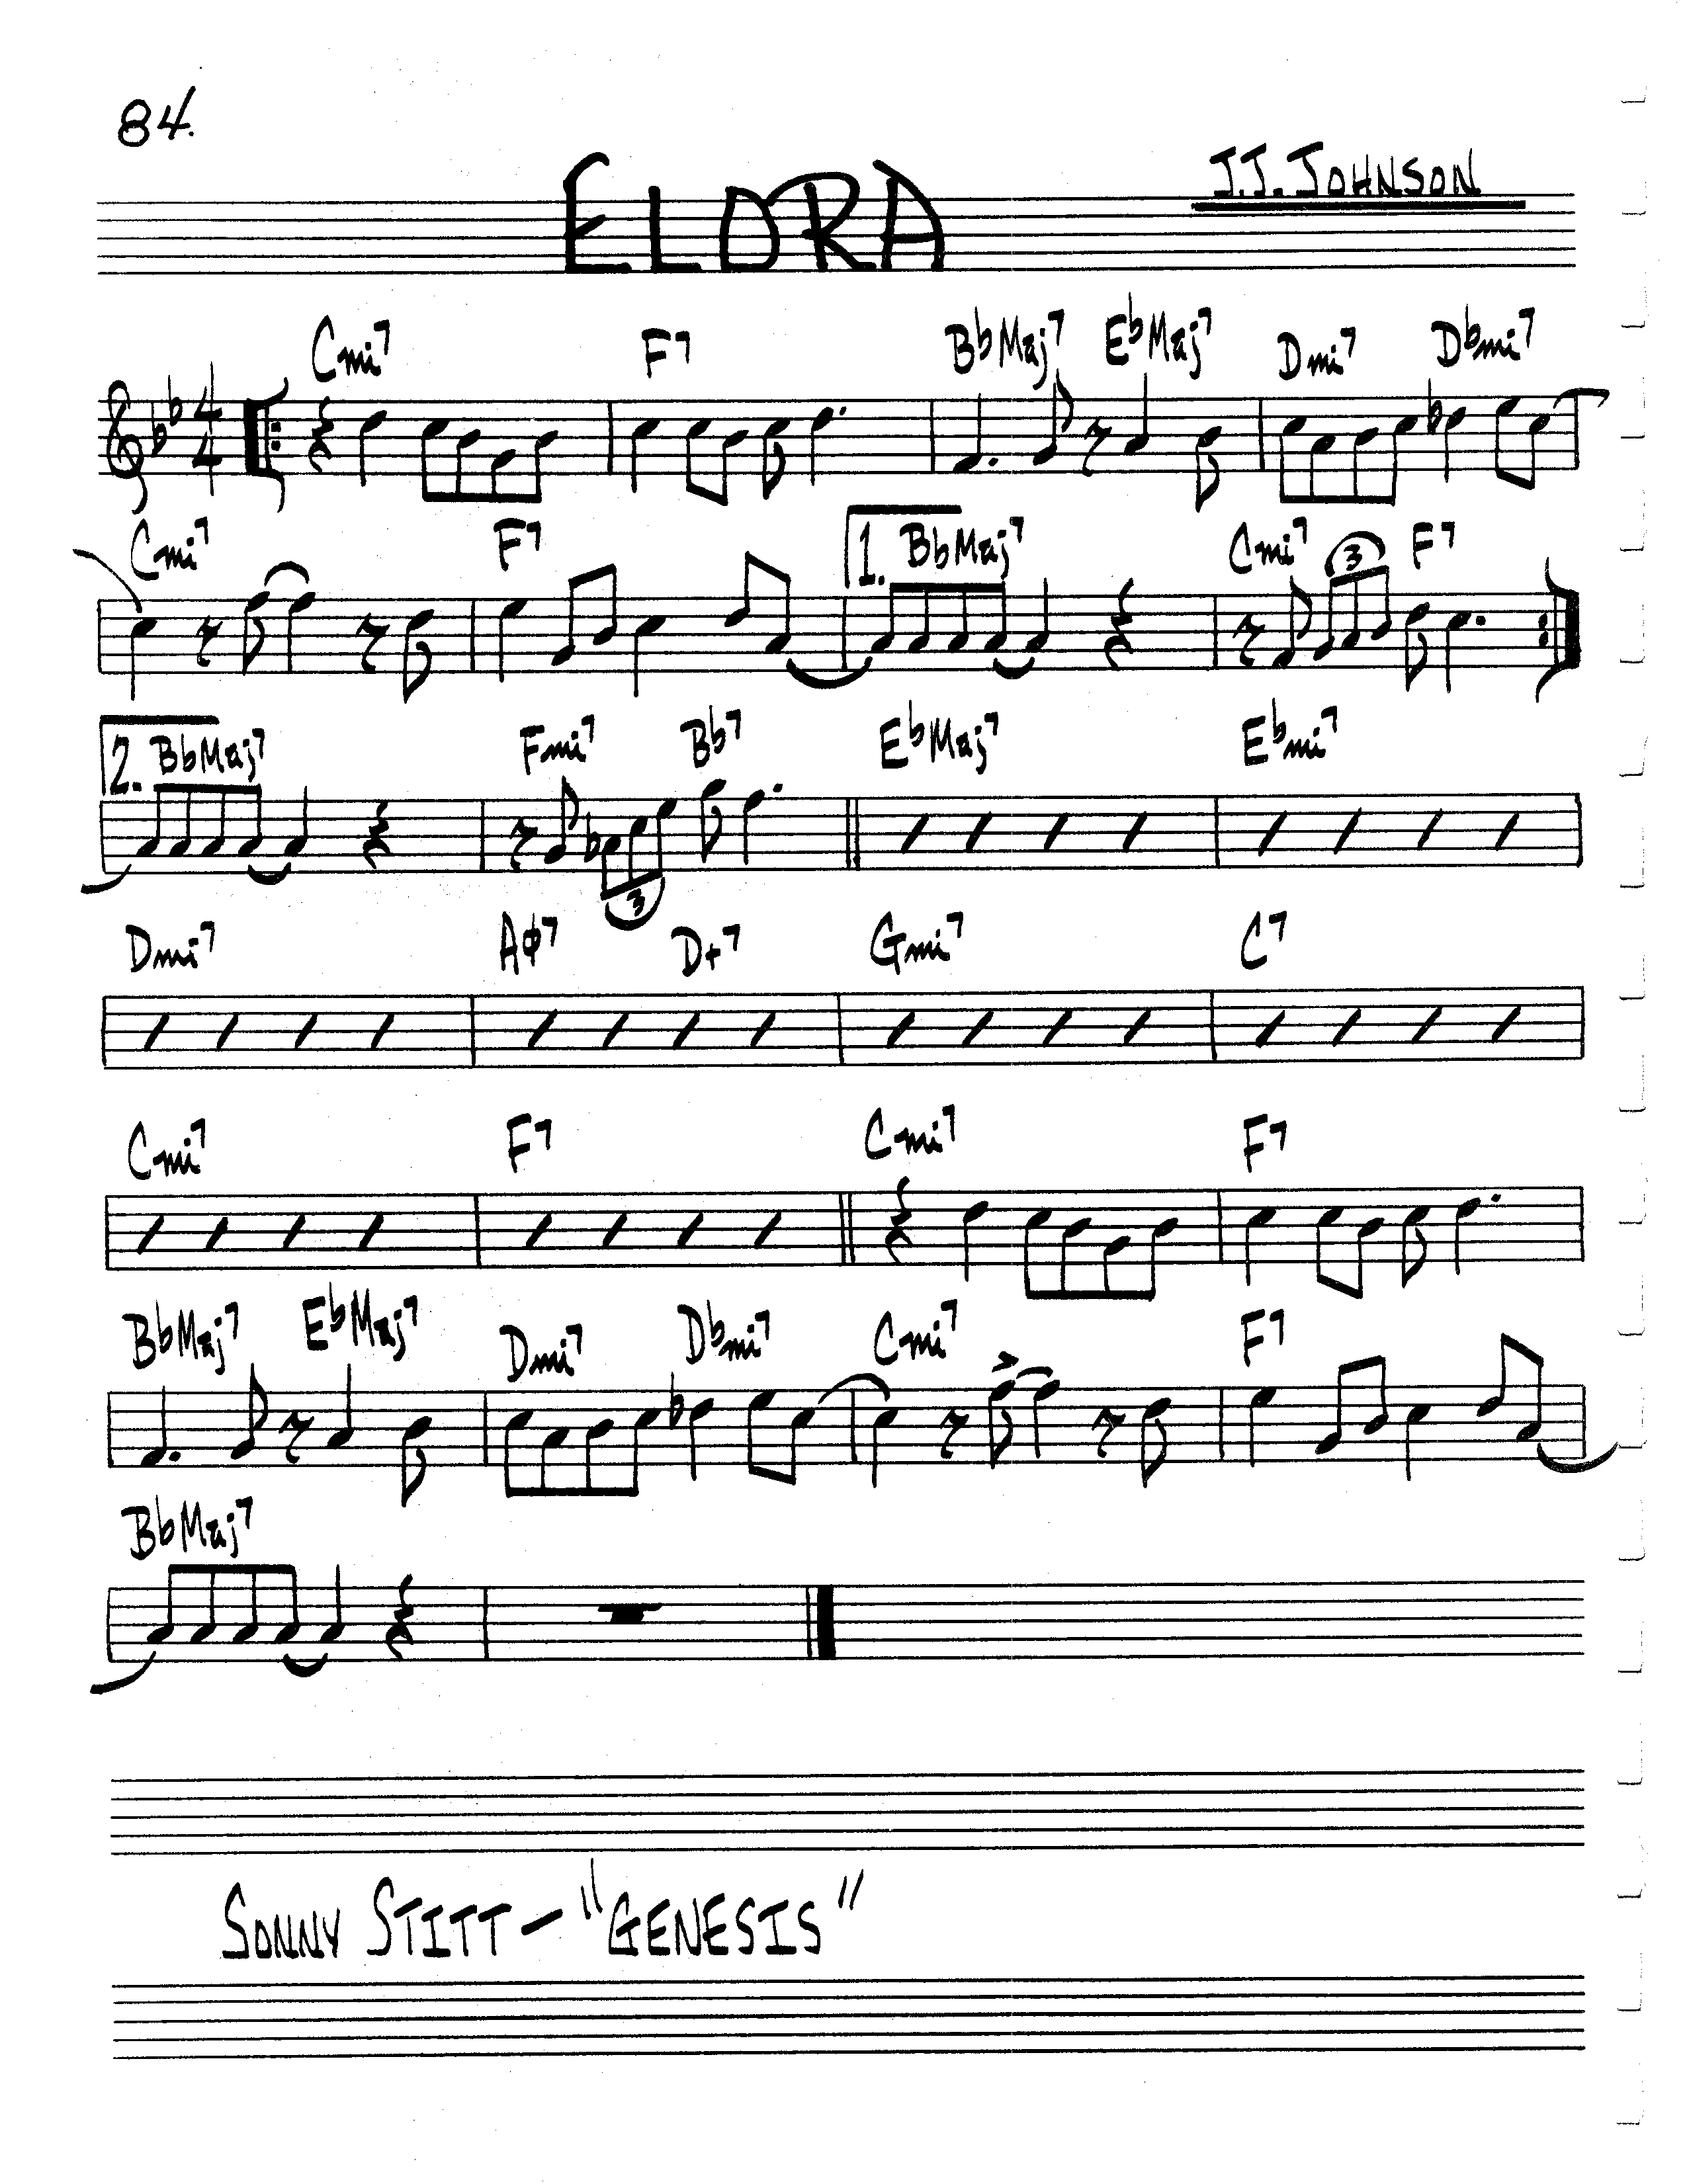 84.
ELORA
J.J. JOHNSON
Cmi7 F7 BbMaj7 EbMaj7 Dmi7 Dbmi7
4
4
Cmi7 F7 1. BbMaj7 Cmi7 3 F7
2. BbMaj7 Fmi7 Bb7 EbMaj7 Ebmi7
3
Dmi7 Aφ7 D+7 Gmi7 C7
Cmi7 F7 Cmi7 F7
BbMaj7 EbMaj7 Dmi7 Dbmi7 Cmi7 F7
BbMaj7
SONNY STITT — "GENESIS"